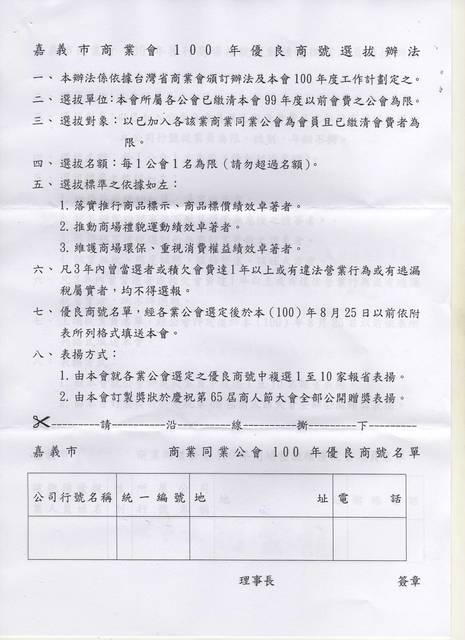 嘉義市商業會100年優良商號選拔辦法
一、本辦法係依據台灣省商業會頒訂辦法及本會100年度工作計劃定之。
二、選拔單位：本會所屬各公會已繳清本會99年度以前會費之公會為限。
三、選拔對象：以已加入各該業商業同業公會為會員且已繳清會費者為
限。
四、選拔名額：每1公會1名為限(請勿超過名額)。
五、選拔標準之依據如左：
1.落實推行商品標示、商品標價績效卓著者。
2.推動商場禮貌運動績效卓著者。
3.維護商場環保、重視消費權益績效卓著者。
六、凡3年內曾當選者或積欠會費達1年以上或有違法營業行為或有逃漏
稅屬實者，均不得選報。
七、優良商號名單，經各業公會選定後於本(100)年8月25日以前依附
表所列格式填送本會。
八、表揚方式：
1.由本會就各業公會選定之優良商號中複選1至10家報省表揚。
2.由本會訂製獎狀於慶祝第65屆商人節大會全部公開贈獎表揚。
✂----------請----------沿----------線----------撕----------下---------
嘉義市 商業同業公會100年優良商號名單
公司行號名稱 統一編號 地 址 電 話
理事長 簽章